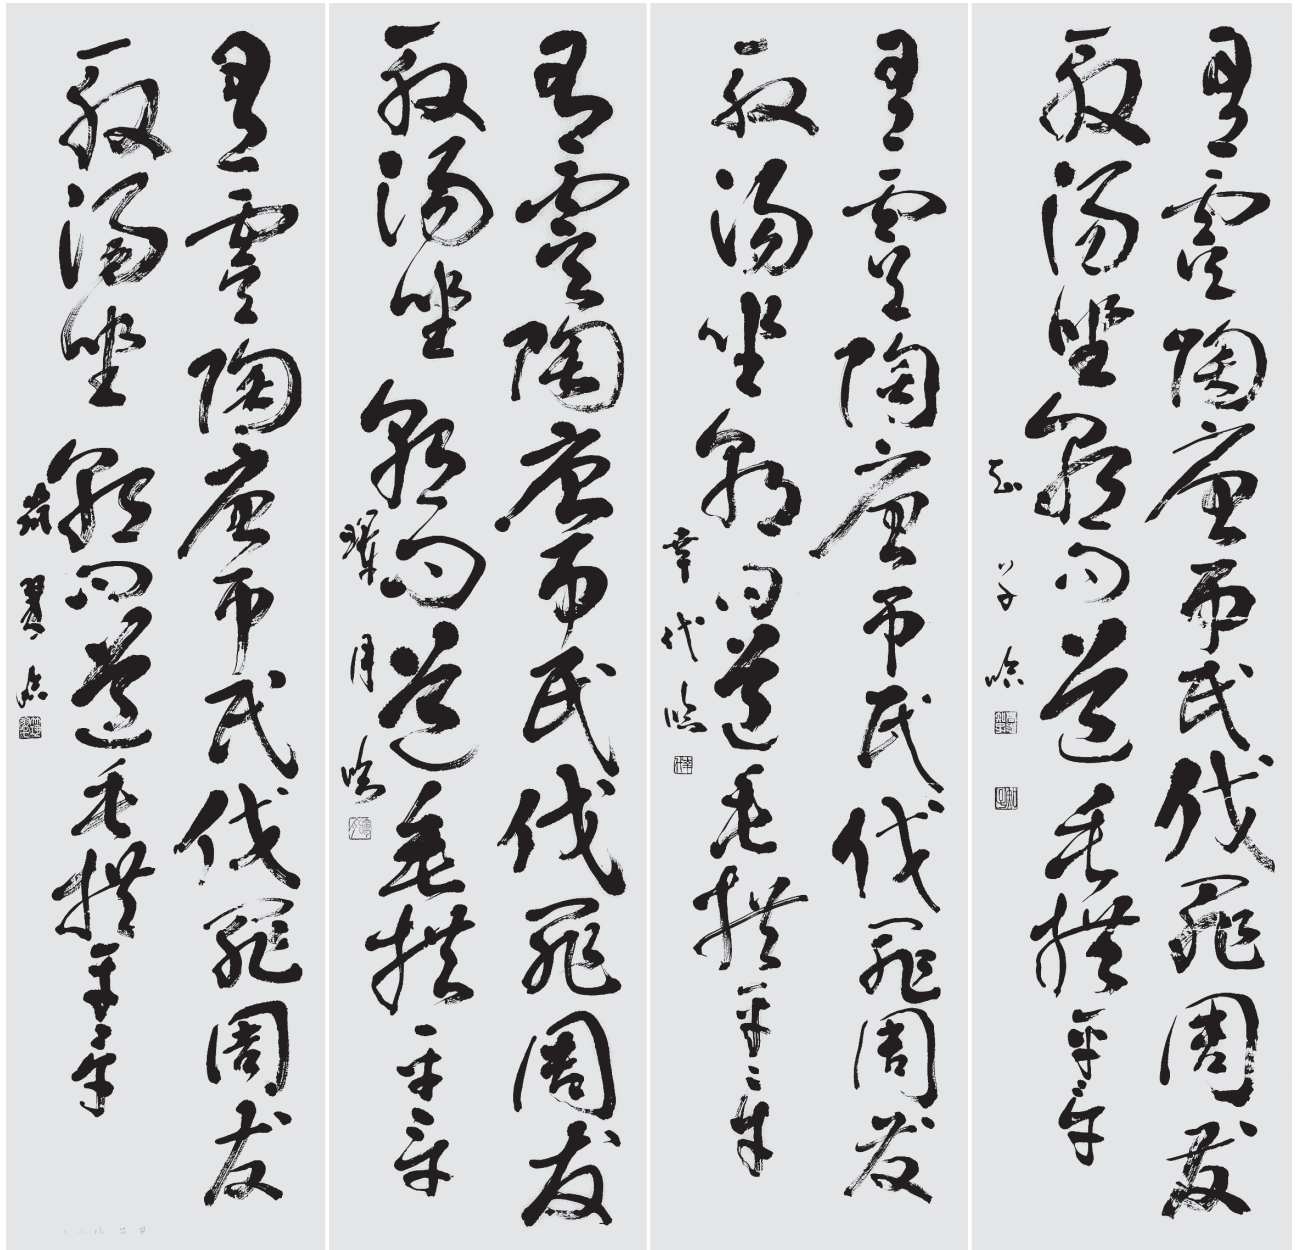 有虞陶唐弔民伐罪周發
殷湯坐朝問道垂拱平章
臨
有虞陶唐弔民伐罪周發
殷湯坐朝問道垂拱平章
幸代臨
有虞陶唐弔民伐罪周發
殷湯坐朝問道垂拱平章
月臨
有虞陶唐弔民伐罪周發
殷湯坐朝問道垂拱平章
翠臨